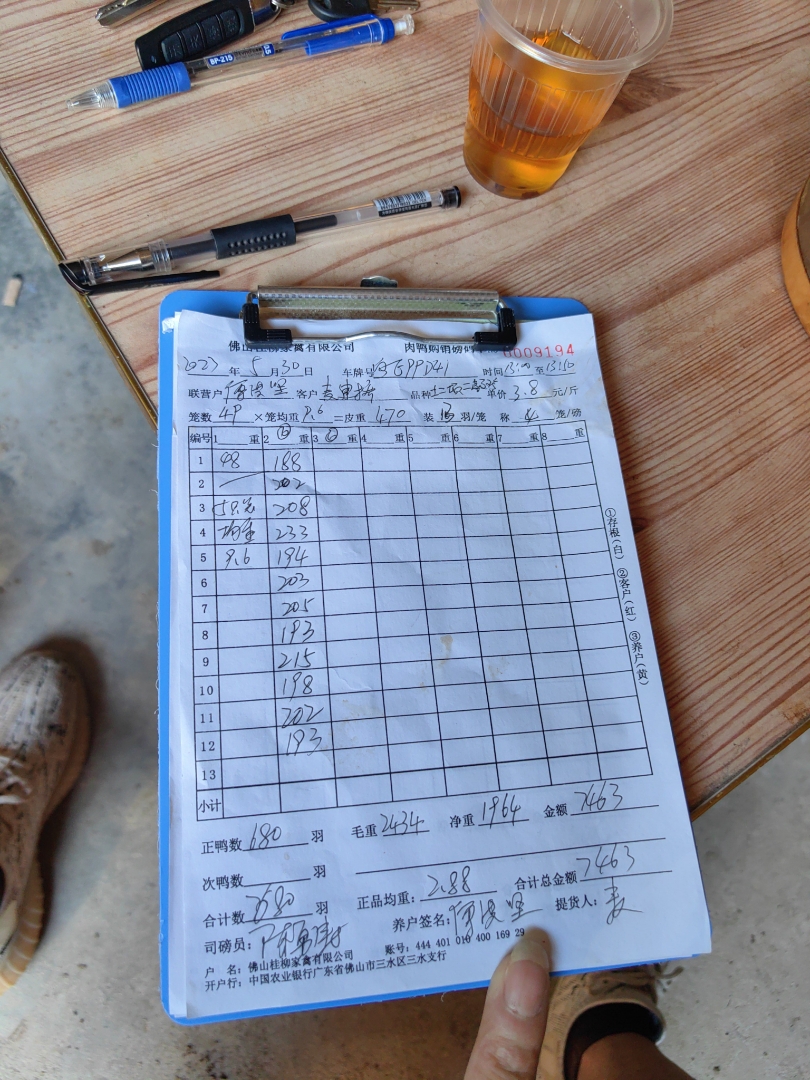 BP-215 0.5
佛山桂柳家禽有限公司 肉鸭购销磅码单 0009194
2023年5月30日 车牌号 时间13:00至13:50
联营户 客户 品种 单价3.8元/斤
笼数49×笼均重9.6=皮重470 装13羽/笼 称4笼/磅
编号 1 重 2 重 3 重 4 重 5 重 6 重 7 重 8 重
1 48 188
2 202
3 208
4 均重 233
5 9.6 194
6 203
7 205
8 193
9 215
10 198
11 202
12 193
13
小计
①存根(白) ②客户(红) ③养户(黄)
正鸭数680羽 毛重2434 净重1964 金额7463
次鸭数 羽
合计数680羽 正品均重:2.88 合计总金额7463
司磅员: 养户签名: 提货人:麦
户 名:佛山桂柳家禽有限公司 账号:444 401 010 400 169 29
开户行:中国农业银行广东省佛山市三水区三水支行